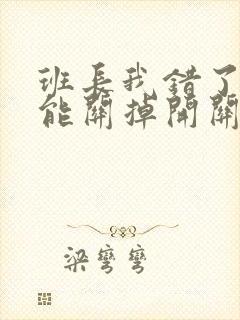 班长我错了
能關掉開關
梁彎彎